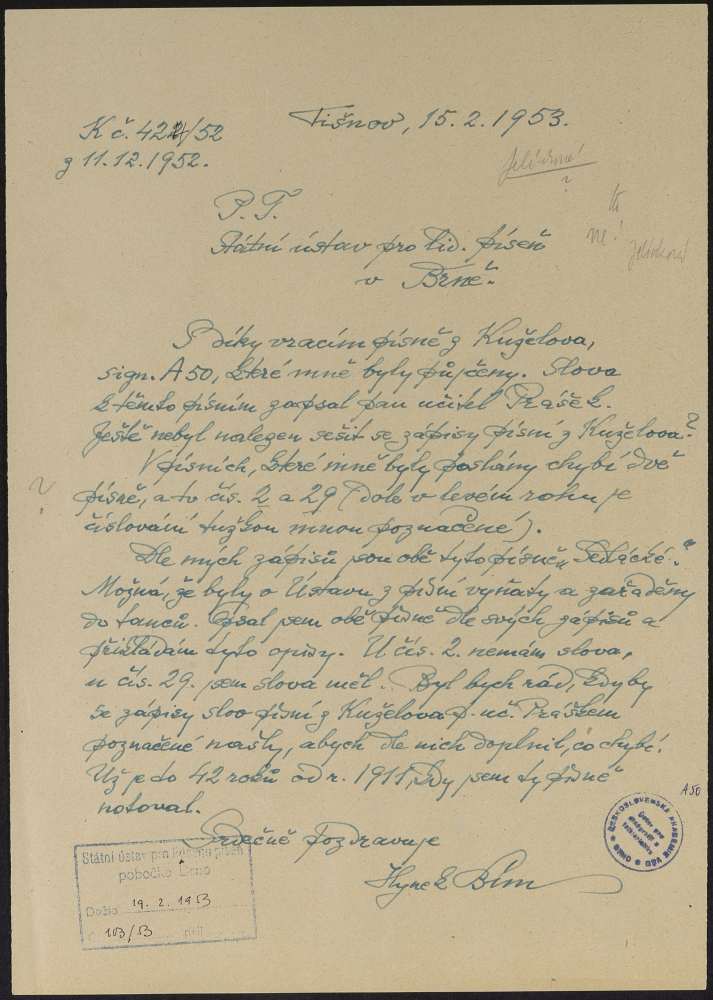 Tišnov, 15.2.1953.
K č. 424/52
z 11.12.1952.
P. T.
Státní ústav pro lid. píseň
v Brně.
ne!
S díky vracím písně z Kuželova,
sign. A 50, které mně byly půjčeny. Slova
k těmto písním zapsal pan učitel Prášek.
Ještě nebyl nalezen sešit se zápisy písní z Kuželova?
V písních, které mně byly poslány chybí dvě
?
písně, a to čís. 2 a 29 (dole v levém rohu je
číslování tužkou mnou poznačené).
Dle mých zápisů jsou obě tyto písně „Sedlácké“.
Možná, že byly v Ústavu z písní vyňaty a zařaděny
do tanců. Psal jsem obě písně dle svých zápisů a
přikládám tyto opisy. U čís. 2. nemám slova,
u čís. 29. jsem slova měl. Byl bych rád, kdyby
se zápisy slov písní z Kuželova p. uč. Práškem
poznačené našly, abych dle nich doplnil, co chybí.
Už je to 42 roků od r. 1911, kdy jsem ty písně
notoval.
A 50
Srdečně pozdravuje
Hynek Bím
Státní ústav pro lidovou píseň
pobočka Brno
Došlo 19. 2. 1953
č. 103/53 příl.
ČESKOSLOVENSKÁ AKADEMIE VĚD
BRNO
Ústav pro
etnografii a
folkloristiku